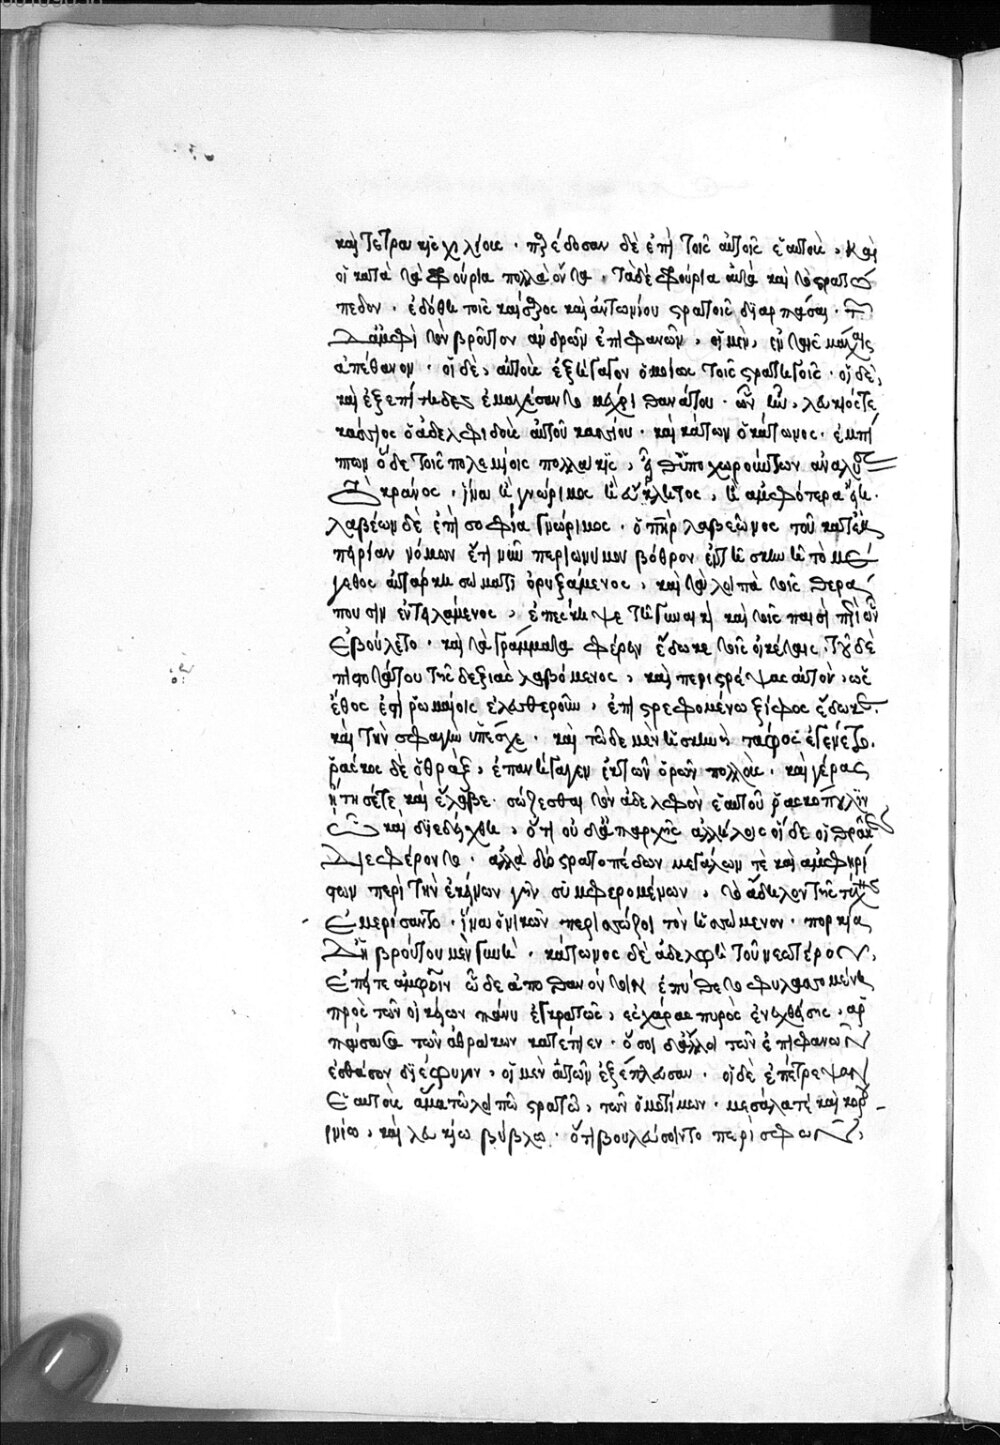 καὶ τετρακισχιλίους · παρέδοσαν δὲ ἐπὶ τοῖς αὐτοῖς ἑαυτοὺς, καὶ
οἱ κατὰ τὰ φρούρια πολλὰ ὄντα · τὰ δὲ φρούρια αὐτὰ καὶ τὸ στρατό
πεδον · ἐδόθη τοῖς καίσαρος καὶ ἀντωνίου στρατοῖς διαρπάσαι · τῶν
δ' ἀμφὶ τὸν βροῦτον ἀνδρῶν ἐπιφανῶν, οἱ μὲν, ἐν ταῖς μάχαις
ἀπέθανον · οἱ δὲ, αὑτοὺς ἐξήγαγον ὁμοίως τοῖς στρατηγοῖς · οἱ δὲ,
καὶ ἐξεπίτηδες ἐμαχέσαντο μέχρι θανάτου · ὧν ἦν, λεύκιός τε
κάσσιος ὁ ἀδελφιδοῦς αὐτοῦ κασσίου · καὶ κάτων ὁ κάτωνος · ἐμπί
πτων ὅδε τοῖς πολεμίοις πολλάκις, εἶθ' ὑποχωρούντων ἀναλύσας
τὸ κράνος, ἵνα ἢ γνώριμος ἢ εὔβλητος, ἢ ἀμφότερα εἴη ·
λαβέων δὲ ἐπὶ σοφία γνώριμος · ὁ πατὴρ λαβεῶνος τοῦ κατ' ἐμ
πειρίαν νόμων ἔτι νῦν περιωνύμου βόθρον ἐν τῆ σκηνῆ τὸ μέ
γεθος αὐτάρκη σώματι ὀρυξάμενος, καὶ τὰ λοιπὰ τοῖς θερά
πουσιν ἐντειλάμενος, ἐπέσκηψε τῆ γυναικὶ καὶ τοῖς παισὶ περὶ ὧν
ἐβούλετο · καὶ τὰ γράμματα φέρειν ἔδωκε τοῖς οἰκέταις · τοῦ δὲ
πιστοτάτου τῆς δεξιᾶς λαβόμενος, καὶ περιστρέψας αὐτὸν, ὡς
ἔθος ἐστὶ ῥωμαίοις ἐλευθεροῦν, ἐπιστρεφομένω ξίφος ἔδωκε ·
καὶ τὴν σφαγὴν ὑπέσχε · καὶ τῶδε μὲν ἡ σκηνὴ τάφος ἐγένετο ·
ῥάσκος δὲ ὁ θρὰξ, ἐπανήγαγεν ἐκ τῶν ὀρῶν πολλοὺς · καὶ γέρας
ἤτησέ τε καὶ ἔλαβε · σώζεσθαι τὸν ἀδελφὸν ἑαυτοῦ ῥασκούπολιν
ὧ καὶ διεδείχθη, ὅτι οὐδ' ἀπαρχῆς ἀλλήλοις οἵδε οἱ θρᾶκες
διεφέροντο · ἀλλὰ δύο στρατοπέδων μεγάλων τὲ καὶ ἀμφηρί
στων περὶ τὴν ἐκείνων γῆν συμφερομένων, τὸ ἄδηλον τῆς τύχης
ἐμερίσαντο · ἵνα ὁ νικῶν περισώζοι τὸν ἡσσώμενον · πορκία
δ' ἡ βρούτου μὲν γυνὴ · κάτωνος δὲ ἀδελφὴ τοῦ νεωτέρου,
ἐπεί τε ἀμφοῖν ὧδε ἀποθανόντοιν ἐπύθετο φυλασσομένη
πρὸς τῶν οἰκείων πάνυ ἐγκρατῶς, ἐσχάρας πυρὸς ἐνεχθείσης, ἁρ
πάσασα τῶν ἀνθράκων κατέπιεν · ὅσοι δ' ἄλλοι τῶν ἐπιφανῶν
ἐς θάσον διέφυγον, οἱ μὲν αὐτῶν ἐξέπλευσαν · οἱ δὲ ἐπέτρεψαν
ἑαυτοὺς ἅμα τῶ λοιπῶ στρατῶ, τῶν ὁμοτίμων · μεσάλα τὲ καὶ κορ
νιφ, καὶ λευκίω βύβλω · ὅτι βουλεύσοιντο περὶ σφῶν,